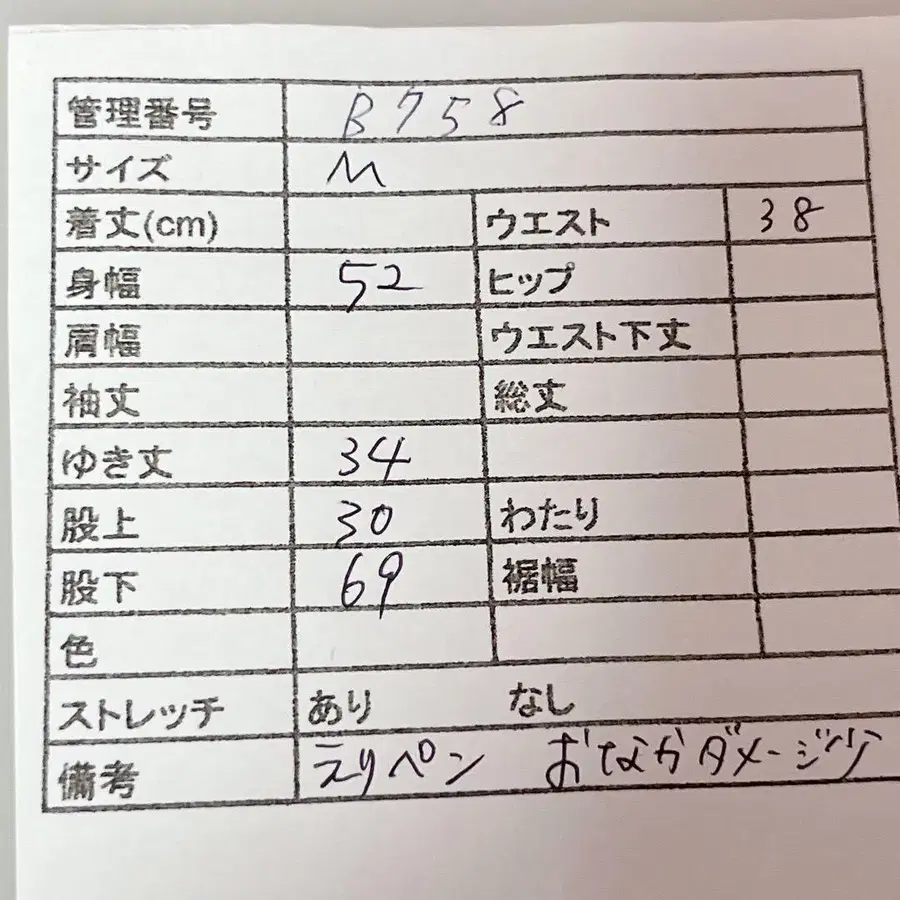 管理番号 B758
サイズ M
着丈(cm) ウエスト 38
身幅 52 ヒップ
肩幅 ウエスト下丈
袖丈 総丈
ゆき丈 34
股上 30 わたり
股下 69 裾幅
色
ストレッチ あり なし
備考 えりペン おなかダメージ少